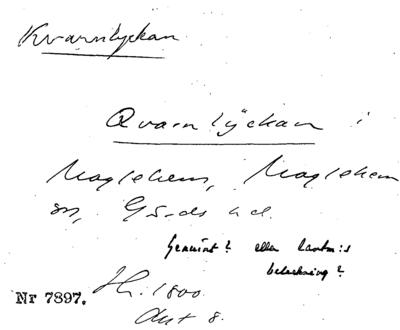 Kvarnlyckan
Qvarnlÿckan i
Maglehem, Maglehem
sn, Gärds hd.
Genuint? eller lantm:s
beteckning?
Nr 7897. Th. 1800
Akt 8.